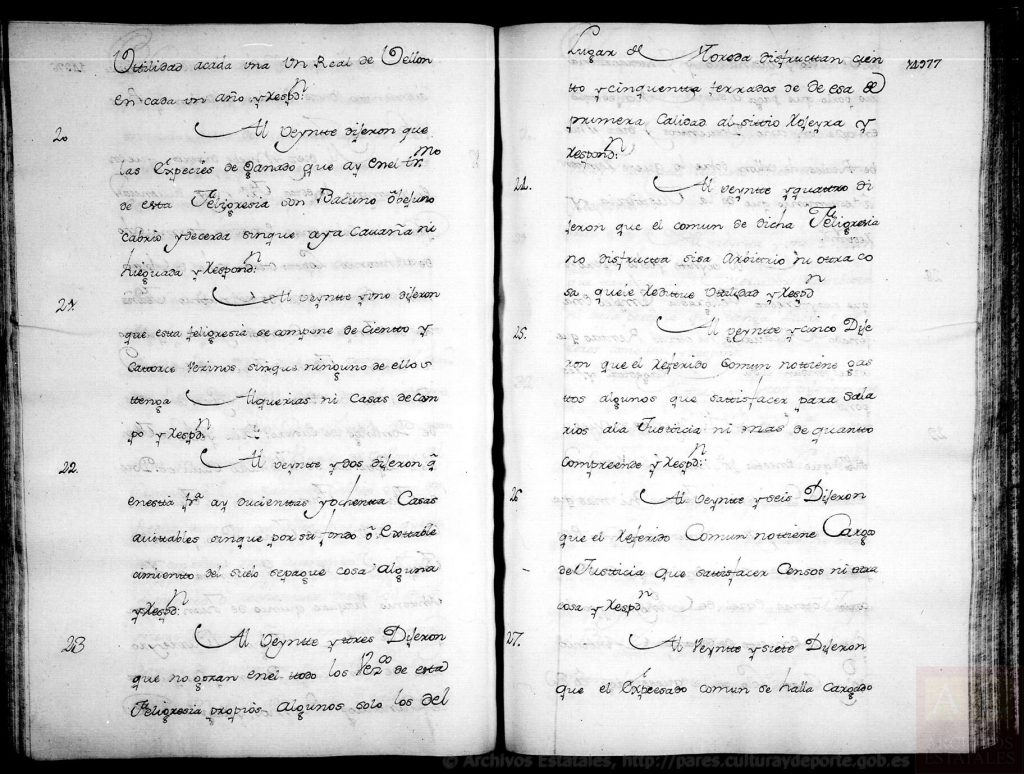 Uttilidad acada una Un Real de Vellon
en cada un año y Respd.n
20 Al Veyntte dijeron que
las Expecies de Ganado que ay enel trmno
de esta Feligresia son Bacuno Obejuno
Cabrio y decerda sinque aya Cavaña ni
Alleguada y Respond.n
21. Al Veyntte y uno dijeron
que esta feligresia se compone de Cientto y
Cattorce Vezinos sinque ninguno de ellos
ttenga Alquerias ni Casas de Cam
po y Respd.n
22. Al Veyntte y dos dijeron q̃
enesta fr.ª ay Ducienttas y ochentta Casas
avittables sinque por su fondo ô Extable
cimientto del suelo sepague cosa Alguna
y Respd.n
23 Al Veyntte y ttres Dijeron
que no gozan enel ttodo los Vez.os de esta
Feligresia propios Algunos solo los del
Lugar de Moroda disfructtan cien
tto y cinquentta ferrados de de esa de
primera Calidad al sittio Rofeyra y
Respond.n
24. Al Veyntte y quattro di
jeron que el comun de dicha Feligresia
no disfructta sisa Arbitrio ni ottra co
sa quele Redittue Uttilidad y Respd.n
25. Al Veyntte y cinco Dije
ron que el Referido Comun nottiene gas
ttos algunos que sattisfacer para Sala
rios ala Justticia ni mas de quantto
Compreende y Respd.n
26 Al Veyntte y seis Dijeron
que el Referido Comun nottiene Cargo
de Justticia que sattisfacer Censos ni ottra
cosa y Respd.n
27. Al Veyntte y siete Dijeron
que el Expresado comun se halla Cargado
© Archivos Estatales, http://pares.culturaydeporte.gob.es
ARCHIVOS
ESTATALES